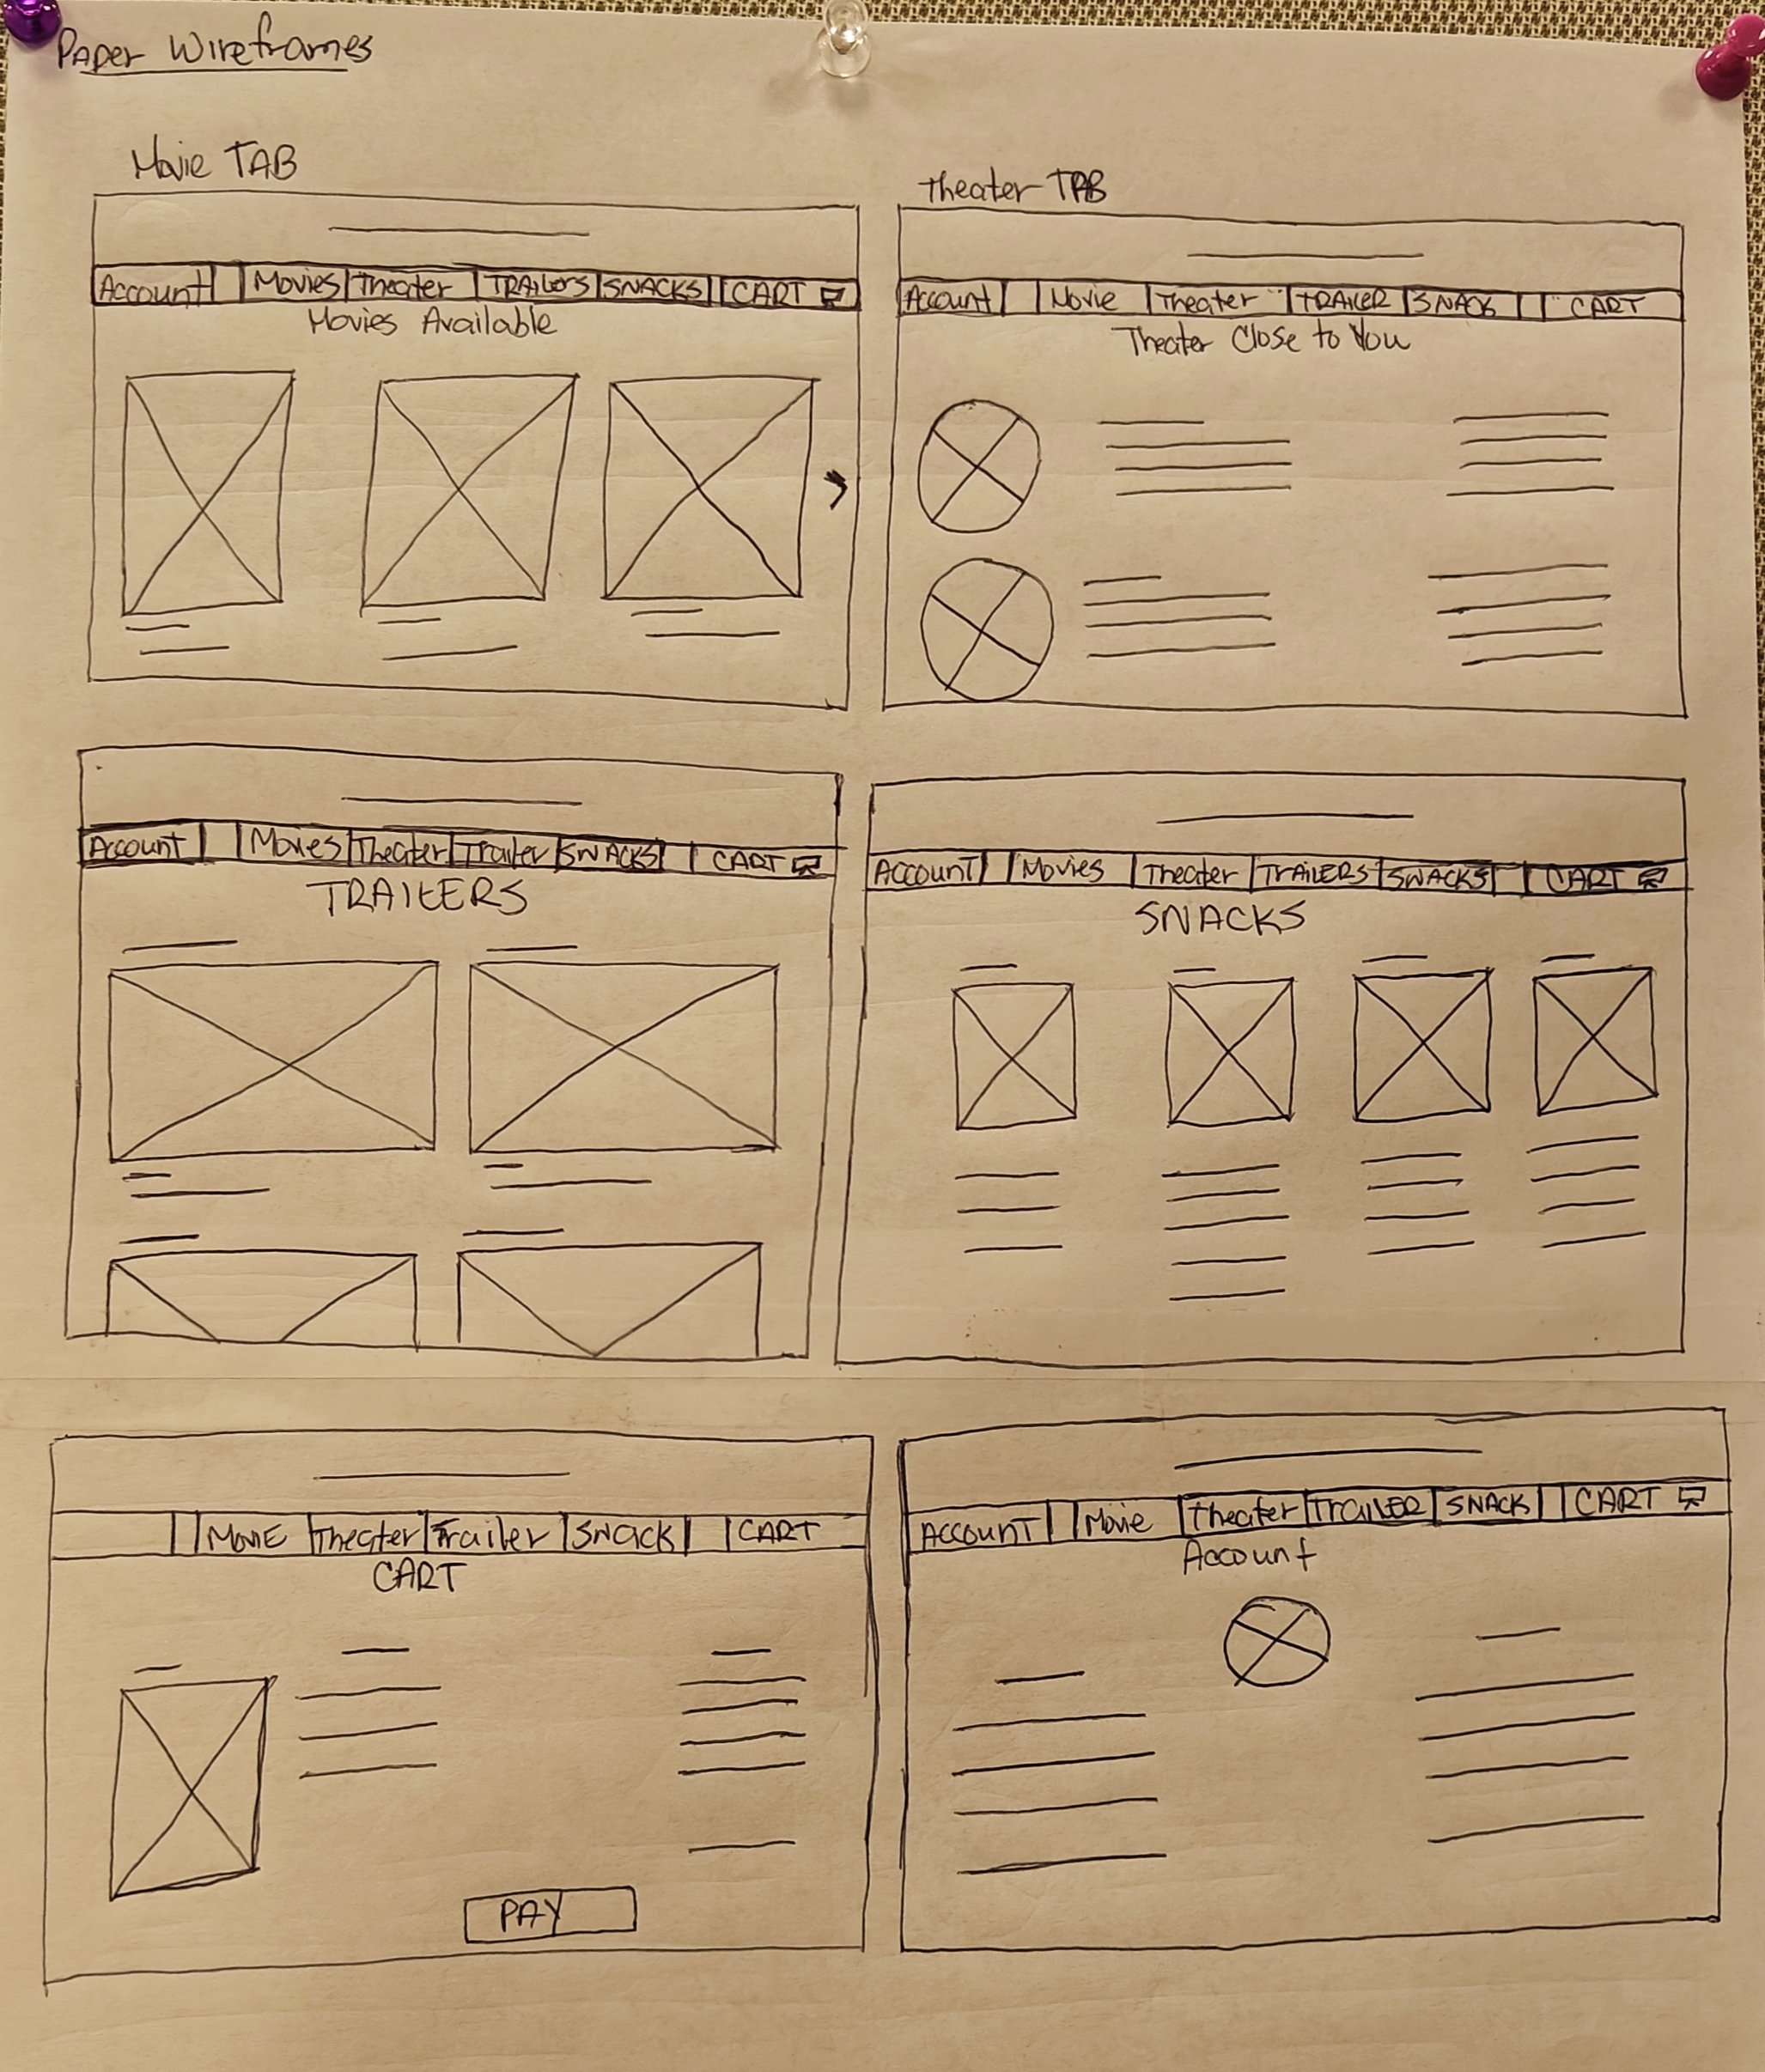 Paper Wireframes
Movie TAB
Account Movies Theater TRAilers SNACKS CART
Movies Available
Theater TAB
Account Movie Theater TRAILER SNACK CART
Theater Close to You
Account Movies Theater Trailer SNACKS CART
TRAILERS
Account Movies Theater TRAILERS SNACKS CART
SNACKS
MOVIE Theater Trailer SNACK CART
CART
PAY
Account Movie Theater TRAILER SNACK CART
Account